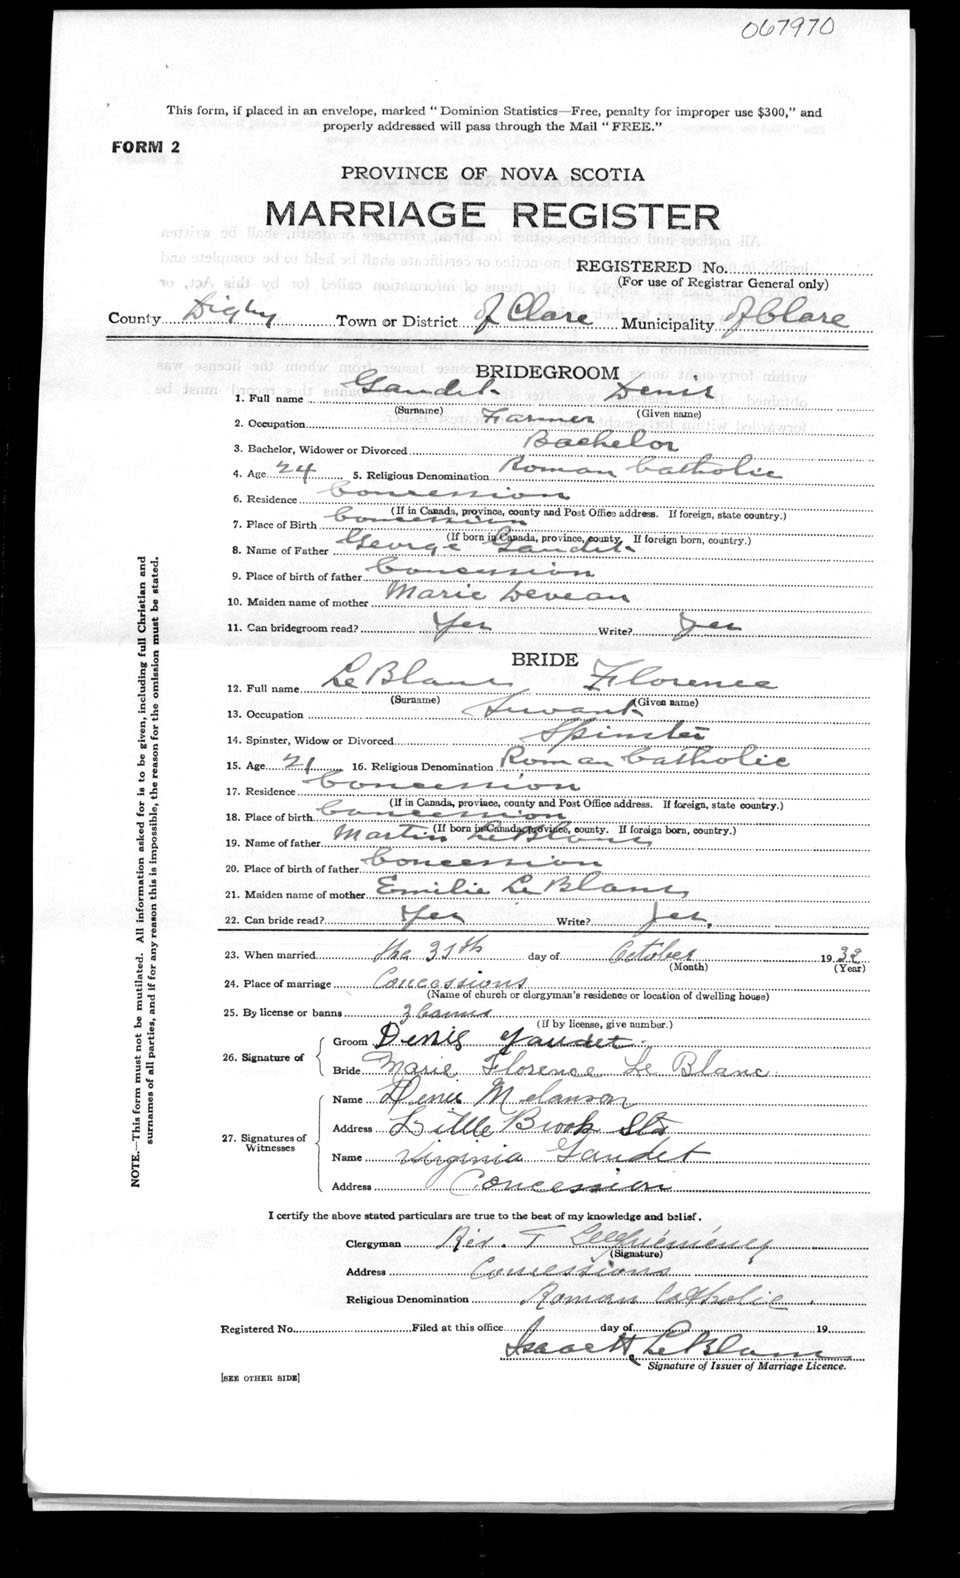 067970
This form, if placed in an envelope, marked "Dominion Statistics—Free, penalty for improper use $300," and
properly addressed will pass through the Mail "FREE."
FORM 2
PROVINCE OF NOVA SCOTIA
MARRIAGE REGISTER
REGISTERED No.
(For use of Registrar General only)
County Digby Town or District of Clare Municipality of Clare
BRIDEGROOM
1. Full name Gaudet Denis
(Surname) (Given name)
2. Occupation Farmer
3. Bachelor, Widower or Divorced Bachelor
4. Age 24 5. Religious Denomination Roman Catholic
6. Residence Concession
(If in Canada, province, county and Post Office address. If foreign, state country.)
7. Place of Birth Concession
(If born in Canada, province, county. If foreign born, country.)
8. Name of Father George Gaudet
9. Place of birth of father Concession
10. Maiden name of mother Marie Deveau
11. Can bridegroom read? Yes Write? Yes
BRIDE
12. Full name LeBlanc Florence
(Surname) (Given name)
13. Occupation Servant
14. Spinster, Widow or Divorced Spinster
15. Age 21 16. Religious Denomination Roman Catholic
17. Residence Concession
(If in Canada, province, county and Post Office address. If foreign, state country.)
18. Place of birth Concession
(If born in Canada, province, county. If foreign born, country.)
19. Name of father Martin LeBlanc
20. Place of birth of father Concession
21. Maiden name of mother Emilie LeBlanc
22. Can bride read? Yes Write? Yes,
23. When married the 31th day of October 1932
(Month) (Year)
24. Place of marriage Concessions
(Name of church or clergyman's residence or location of dwelling house)
25. By license or banns 3 banns
(If by license, give number.)
26. Signature of
Groom Denis Gaudet
Bride Marie Florence Le Blanc
27. Signatures of Witnesses
Name Denis Melanson
Address Little Brook Sta
Name Virginia Gaudet
Address Concession
I certify the above stated particulars are true to the best of my knowledge and belief.
Clergyman Rev. T
(Signature)
Address Concessions
Religious Denomination Roman Catholic
Registered No. Filed at this office day of 19
Isaac H. LeBlanc
Signature of Issuer of Marriage Licence.
[SEE OTHER SIDE]
NOTE.—This form must not be mutilated. All information asked for is to be given, including full Christian and
surnames of all parties, and if for any reason this is impossible, the reason for the omission must be stated.